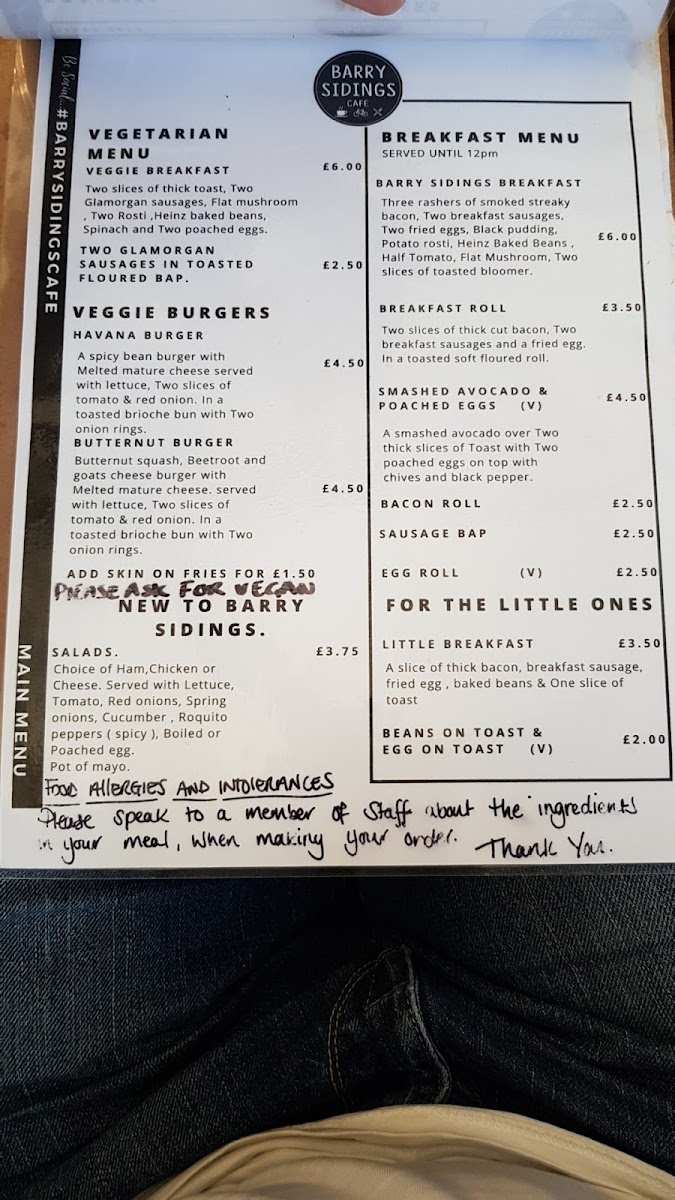 BARRY
SIDINGS
CAFE
Be Social... #BARRYSIDINGSCAFE
MAIN MENU
VEGETARIAN
MENU
VEGGIE BREAKFAST £6.00
Two slices of thick toast, Two
Glamorgan sausages, Flat mushroom
, Two Rosti ,Heinz baked beans,
Spinach and Two poached eggs.
TWO GLAMORGAN
SAUSAGES IN TOASTED £2.50
FLOURED BAP.
VEGGIE BURGERS
HAVANA BURGER
A spicy bean burger with £4.50
Melted mature cheese served
with lettuce, Two slices of
tomato & red onion. In a
toasted brioche bun with Two
onion rings.
BUTTERNUT BURGER
Butternut squash, Beetroot and
goats cheese burger with
Melted mature cheese. served £4.50
with lettuce, Two slices of
tomato & red onion. In a
toasted brioche bun with Two
onion rings.
ADD SKIN ON FRIES FOR £1.50
PLEASE ASK FOR VEGAN
NEW TO BARRY
SIDINGS.
SALADS. £3.75
Choice of Ham,Chicken or
Cheese. Served with Lettuce,
Tomato, Red onions, Spring
onions, Cucumber , Roquito
peppers ( spicy ), Boiled or
Poached egg.
Pot of mayo.
BREAKFAST MENU
SERVED UNTIL 12pm
BARRY SIDINGS BREAKFAST
Three rashers of smoked streaky
bacon, Two breakfast sausages,
Two fried eggs, Black pudding, £6.00
Potato rosti, Heinz Baked Beans ,
Half Tomato, Flat Mushroom, Two
slices of toasted bloomer.
BREAKFAST ROLL £3.50
Two slices of thick cut bacon, Two
breakfast sausages and a fried egg.
In a toasted soft floured roll.
SMASHED AVOCADO & £4.50
POACHED EGGS (V)
A smashed avocado over Two
thick slices of Toast with Two
poached eggs on top with
chives and black pepper.
BACON ROLL £2.50
SAUSAGE BAP £2.50
EGG ROLL (V) £2.50
FOR THE LITTLE ONES
LITTLE BREAKFAST £3.50
A slice of thick bacon, breakfast sausage,
fried egg , baked beans & One slice of
toast
BEANS ON TOAST & £2.00
EGG ON TOAST (V)
FOOD AllERGIES AND INTOlERANCES
Please speak to a member of Staff about the ingredients
in your meal, when making your order. Thank You.